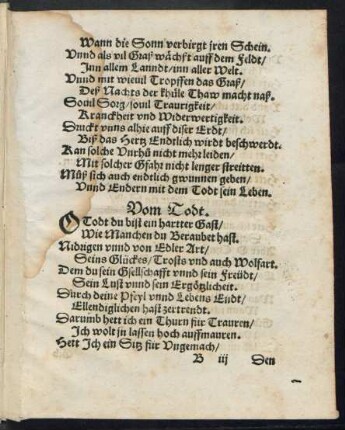 Wann die Sonn verbirgt jren Schein.
Vnnd als vil Graß wächst auff dem Feldt/
Inn allem Lanndt/ inn aller Welt.
Vnnd mit wieuil Tropffen das Graß/
Deß Nachts der khüle Thaw macht naß.
Souil Sorg/ souil Traurigkeit/
Kranckheit vnd Widerwertigkeit.
Druckt vnns alhie auff diser Erdt/
Biß das Hertz Endtlich wirdt beschwerdt.
Kan solche Vnrhü nicht mehr leiden/
Mit solcher Gfahr nicht lenger streitten.
Müß sich auch endtlich gwunnen geben/
Vnnd Endern mit dem Todt sein Leben.
Vom Todt.
O Todt du bist ein hartter Gast/
Wie Manchen du Beraubet hast.
Nidigen vnnd von Edler Art/
Seins Glückes/ Trosts vnd auch Wolfart.
Dem du sein Gsellschafft vnnd sein Freüdt/
Sein Lust vnnd sein Ergötzlicheit.
Durch deine Pfeyl vnnd Lebens Endt/
Ellendiglichen hast zertrendt.
Darumb hett ich ein Thurn für Trauren/
Ich wolt jn lassen hoch auffmauren.
Hett Ich ein Sitz für Vngemach/
B iij Den